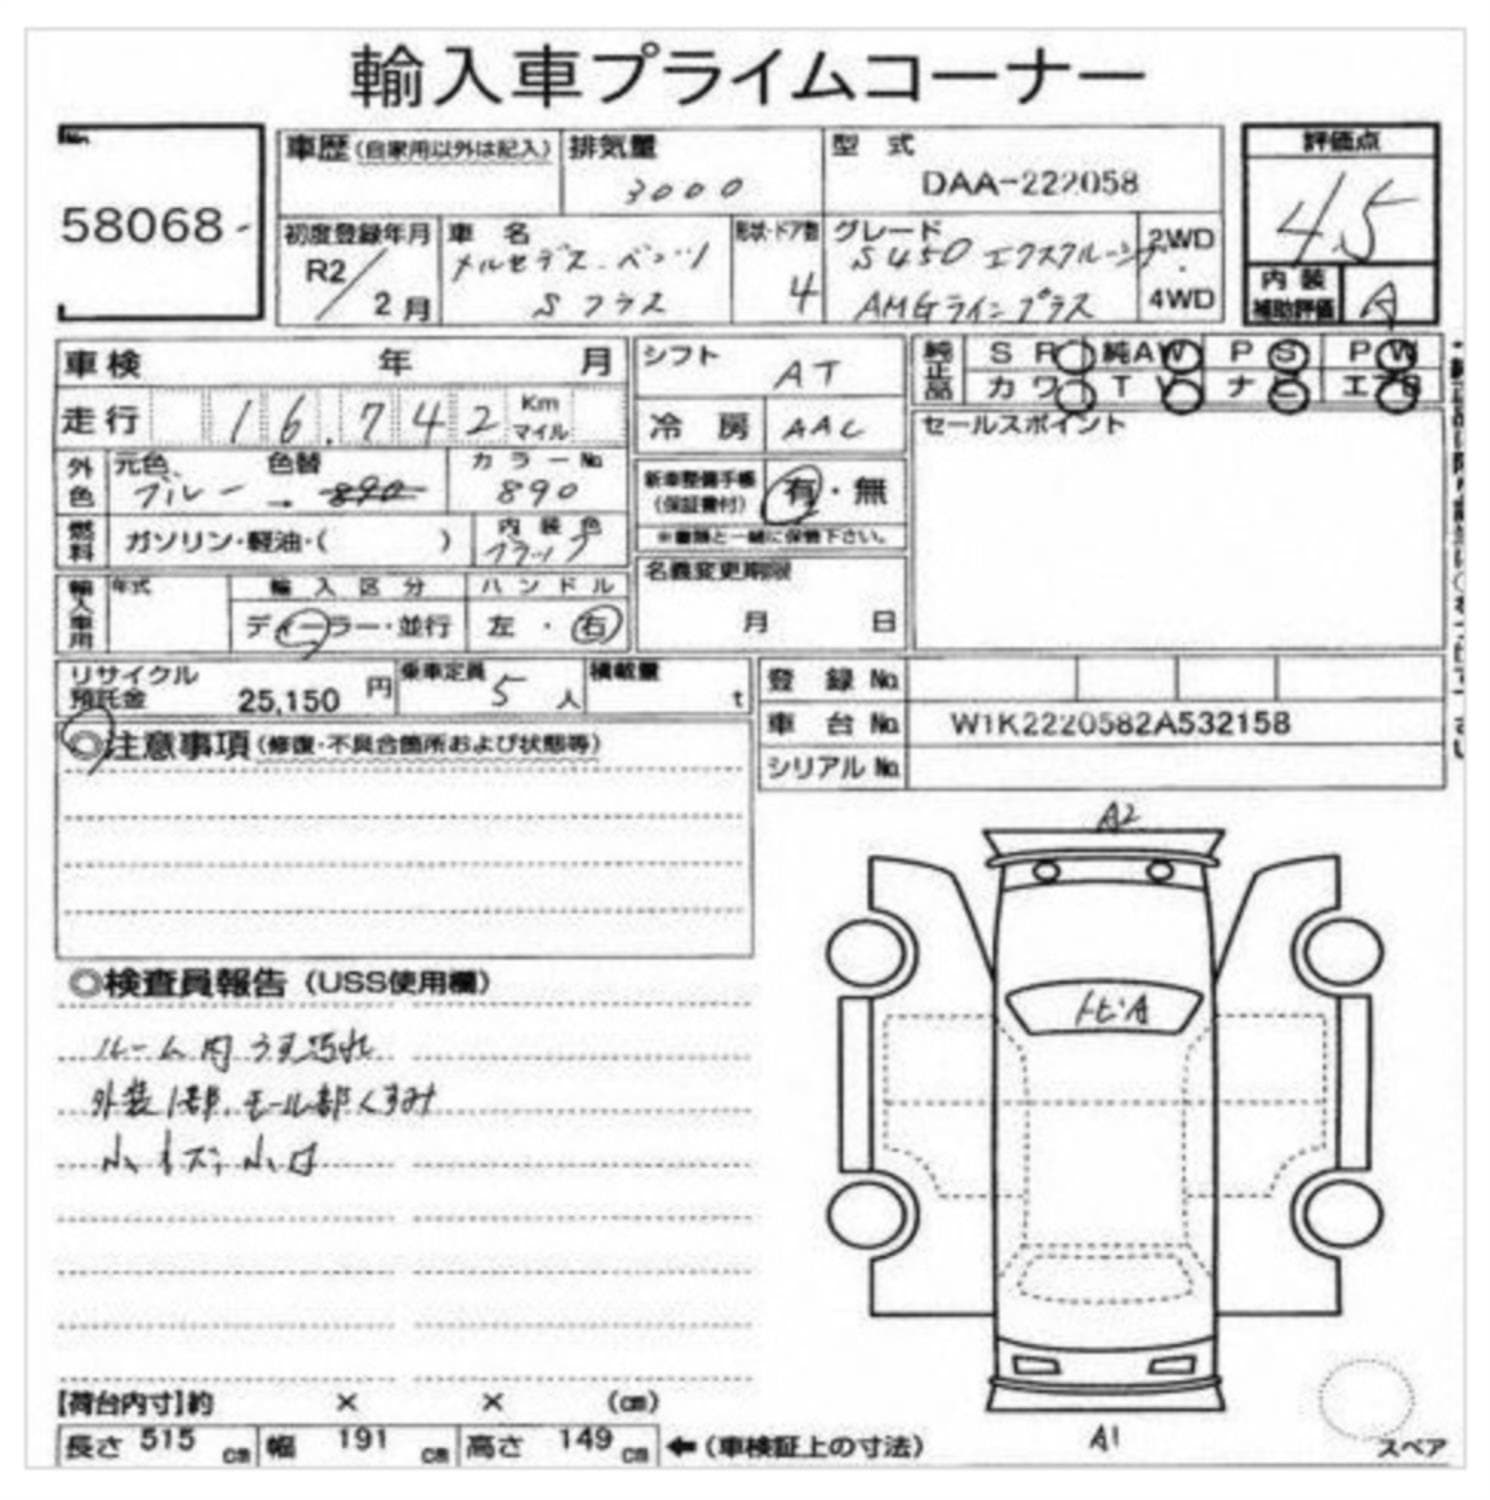 輸入車プライムコーナー
No.
58068
車歴(自家用以外は記入)
排気量
3000
型式
DAA-222058
評価点
4.5
初度登録年月
R2/2月
車名
メルセデス・ベンツ
Sクラス
形状・ドア数
4
グレード
S450 エクスクルーシブ
AMGラインプラス
2WD
・
4WD
内装
補助評価
A
車検 年 月
走行 16.742 Km
マイル
外色
元色 色替
ブルー → 890
カラーNo.
890
燃料
ガソリン・軽油・( )
内装色
ブラック
輸入車用
年式
輸入区分
ディーラー・並行
ハンドル
左・右
シフト
AT
冷房
AAC
新車整備手帳
(保証書付)
有・無
※書類と一緒に保管下さい。
名義変更期限
月 日
純正品
SR 純AW PS PW
カワ TV ナビ エアB
セールスポイント
リサイクル
預託金 25,150 円
乗車定員
5 人
積載量
t
登録No.
車台No. W1K2220582A532158
シリアルNo.
◎注意事項(修復・不具合箇所および状態等)
◎検査員報告(USS使用欄)
ルーム内うす汚れ
外装1部、モール部くすみ
小キズ、小凹
A2
トビA
A1
スペア
【荷台内寸】約 × × (cm)
長さ 515 cm 幅 191 cm 高さ 149 cm ←(車検証上の寸法)